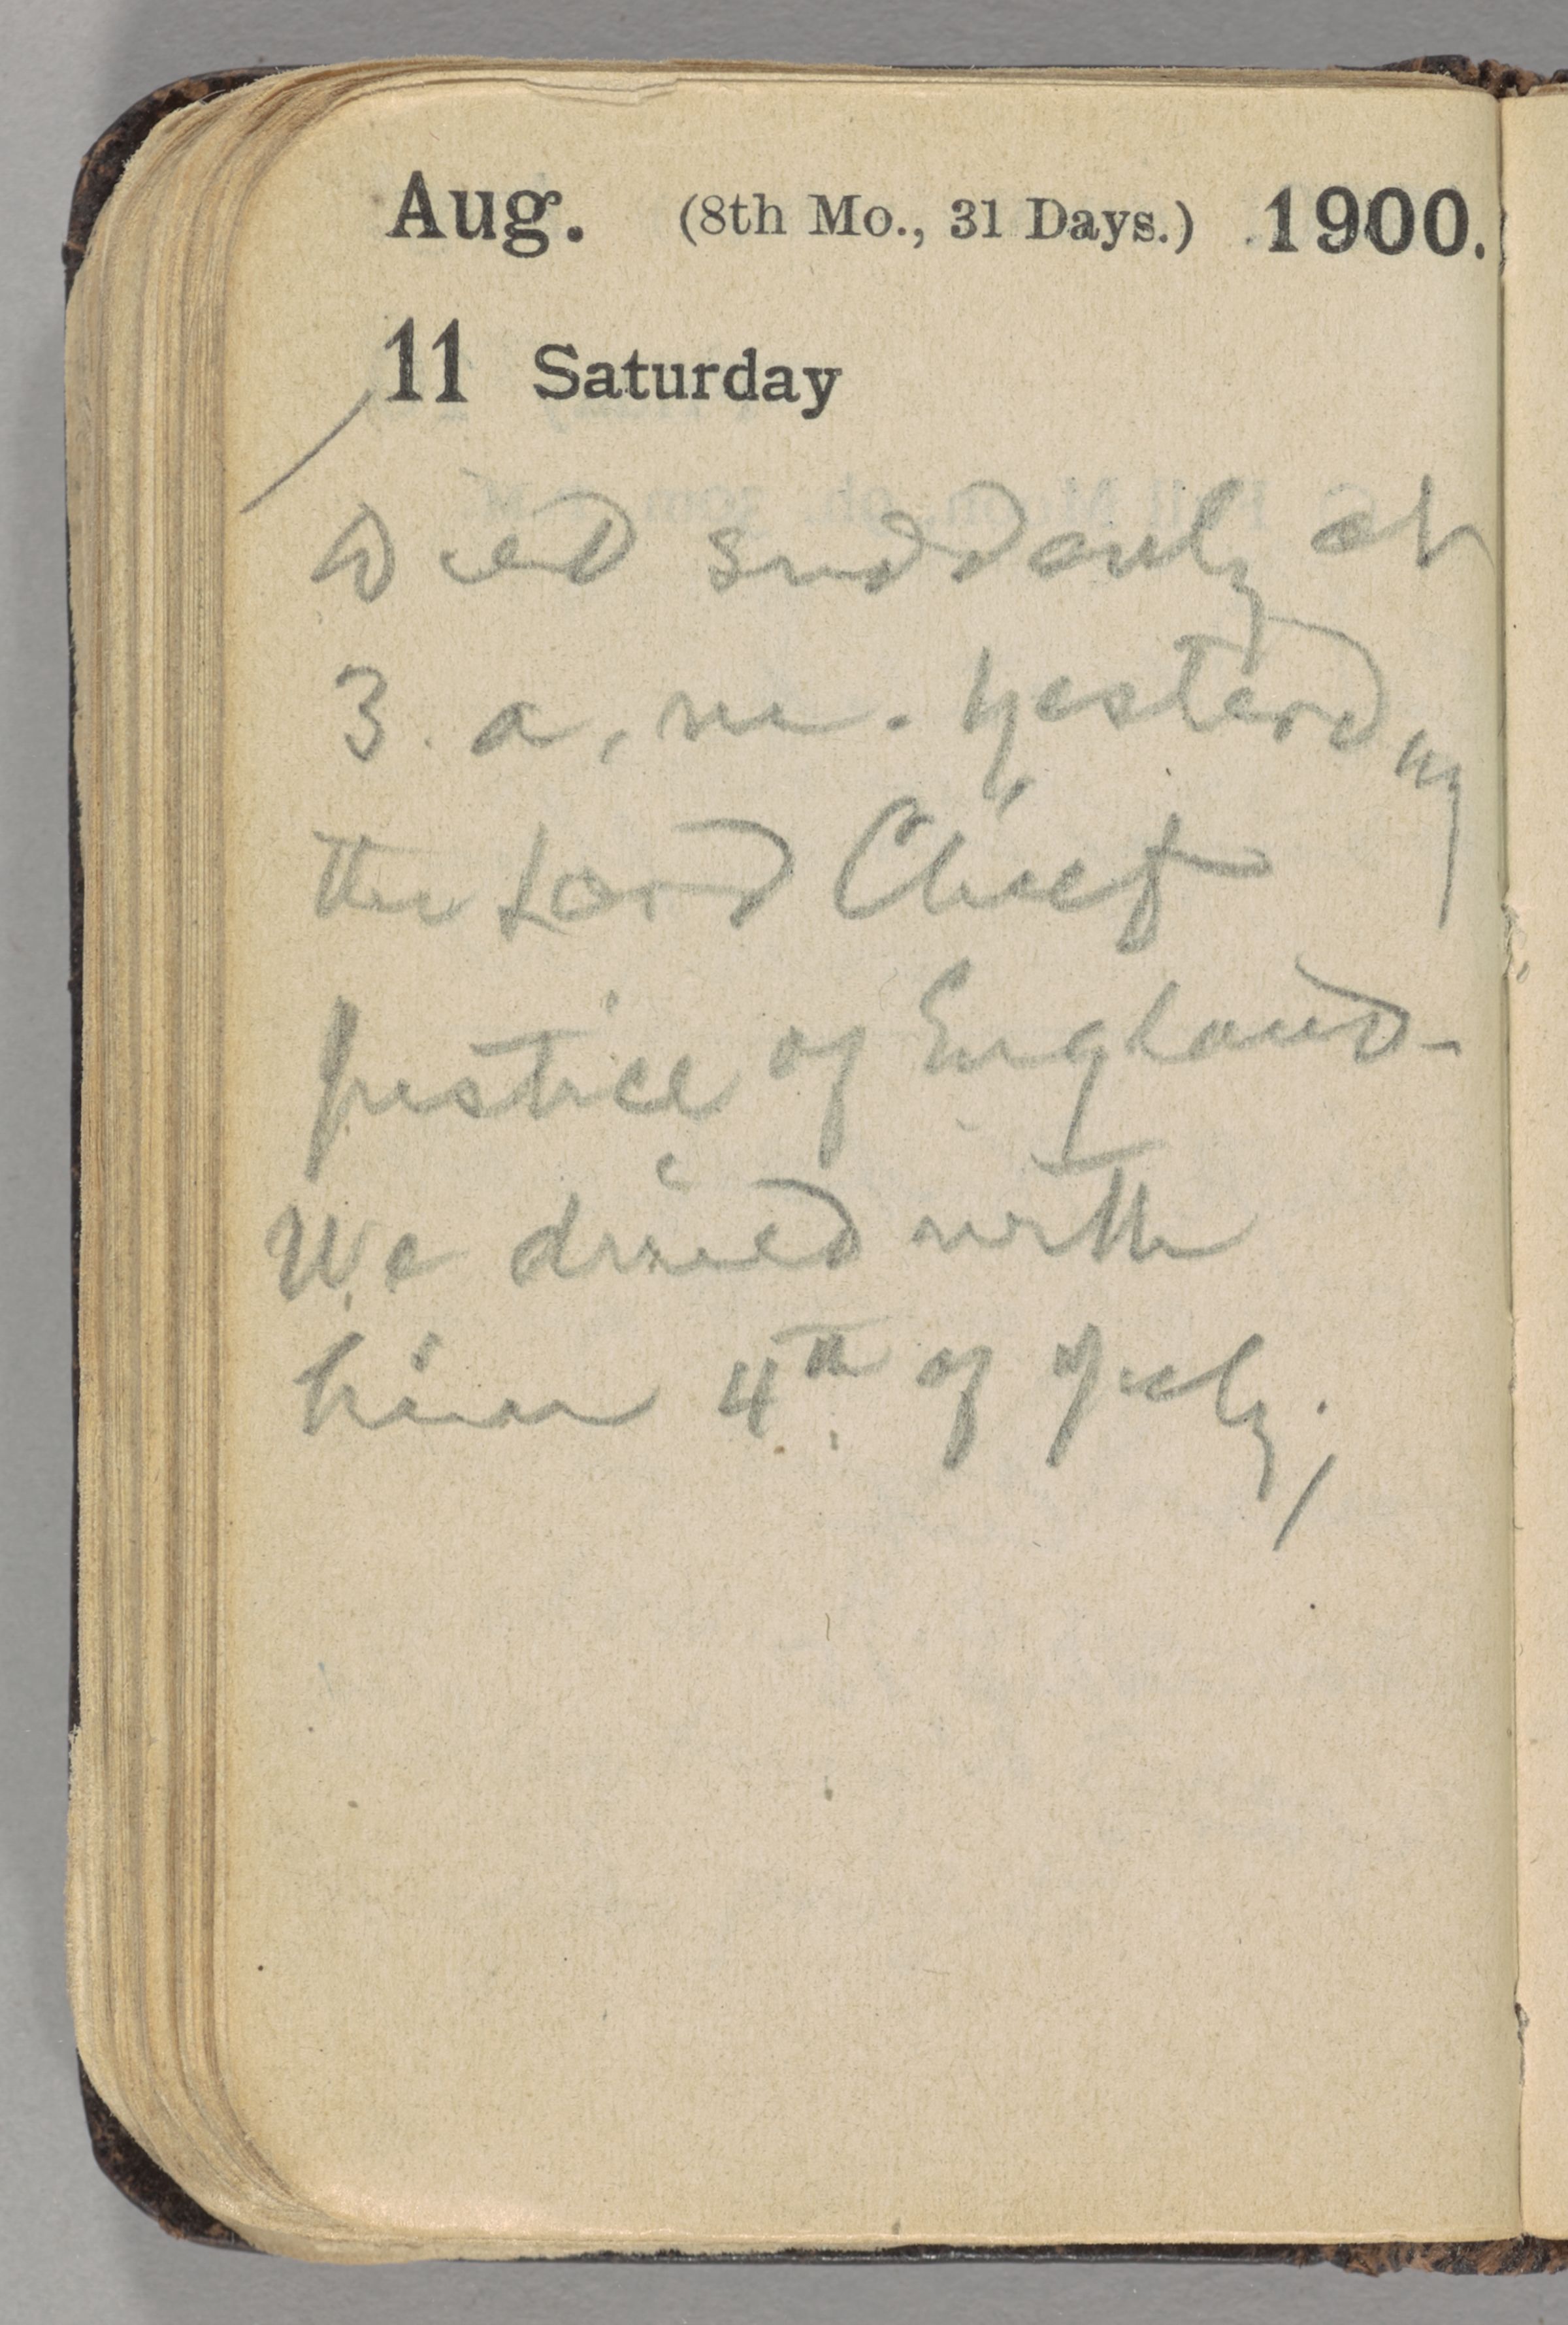 Aug. (8th Mo., 31 Days.) 1900.
11 Saturday
Died suddenly at
3. a. m. yesterday
the Lord Chief
Justice of England-
We dined with
him 4th of July,